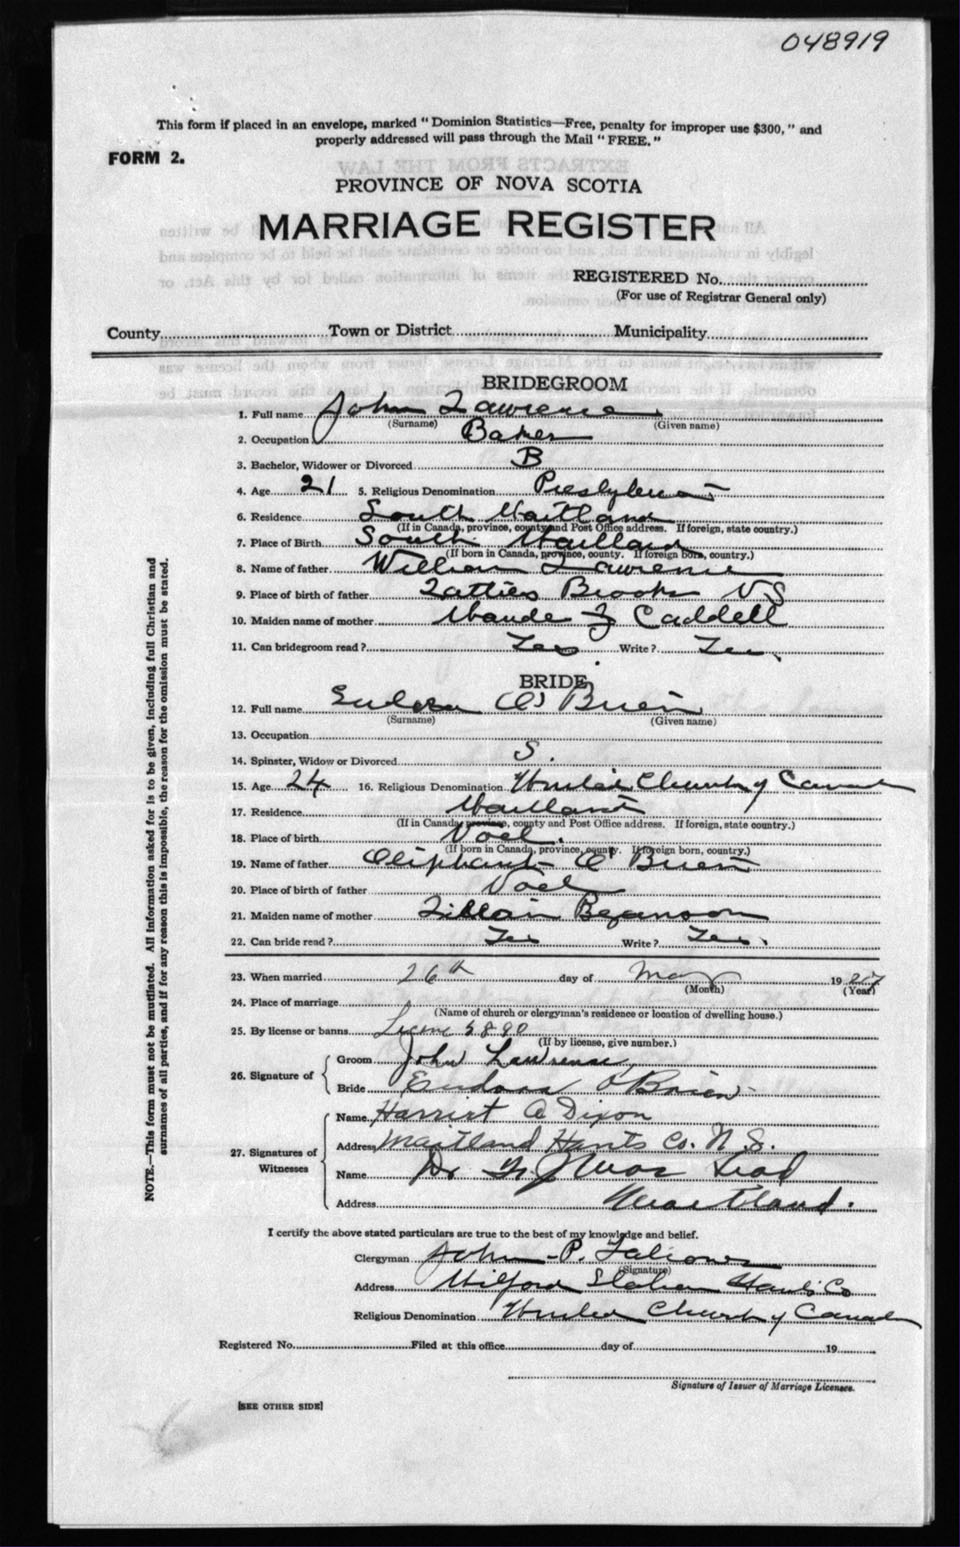 048919
This form if placed in an envelope, marked "Dominion Statistics—Free, penalty for improper use $300," and
properly addressed will pass through the Mail "FREE."
FORM 2.
PROVINCE OF NOVA SCOTIA
MARRIAGE REGISTER
REGISTERED No.
(For use of Registrar General only)
County Town or District Municipality
BRIDEGROOM
1. Full name John Lawrence
(Surname) (Given name)
2. Occupation Baker
3. Bachelor, Widower or Divorced B
4. Age 21 5. Religious Denomination Presbyterian
6. Residence South Maitland
(If in Canada, province, county and Post Office address. If foreign, state country.)
7. Place of Birth South Maitland
(If born in Canada, province, county. If foreign born, country.)
8. Name of father William Lawrence
9. Place of birth of father Latties Brook N S
10. Maiden name of mother Maude Caddell
11. Can bridegroom read? Yes. Write? Yes.
BRIDE
12. Full name Eudora O'Brien
(Surname) (Given name)
13. Occupation
14. Spinster, Widow or Divorced S.
15. Age 24 16. Religious Denomination United Church of Canada
17. Residence Maitland
(If in Canada, province, county and Post Office address. If foreign, state country.)
18. Place of birth Noel.
(If born in Canada, province, county. If foreign born, country.)
19. Name of father Oliphant O'Brien
20. Place of birth of father Noel
21. Maiden name of mother Lillian Bezanson
22. Can bride read? Yes Write? Yes.
23. When married 26th day of May 1927
(Month) (Year)
24. Place of marriage
(Name of church or clergyman's residence or location of dwelling house.)
25. By license or banns License 5890
(If by license, give number.)
26. Signature of
Groom John Lawrence
Bride Eudora O'Brien
27. Signatures of Witnesses
Name Harriet A Dixon
Address Maitland Hants Co. N. S.
Name Dr
Address Maitland.
I certify the above stated particulars are true to the best of my knowledge and belief.
Clergyman John P.
(Signature)
Address Milford Station Hants Co
Religious Denomination United Church of Canada
Registered No. Filed at this office day of 19
Signature of Issuer of Marriage Licenses.
[SEE OTHER SIDE]
NOTE.—This form must not be mutilated. All information asked for is to be given, including full Christian and
surnames of all parties, and if for any reason this is impossible, the reason for the omission must be stated.